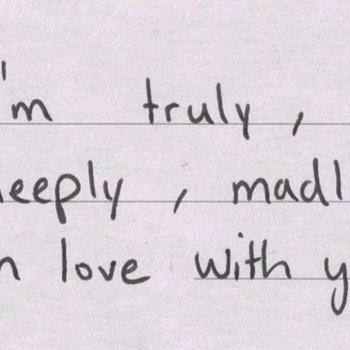 'm truly,
eeply, madl
n love with y